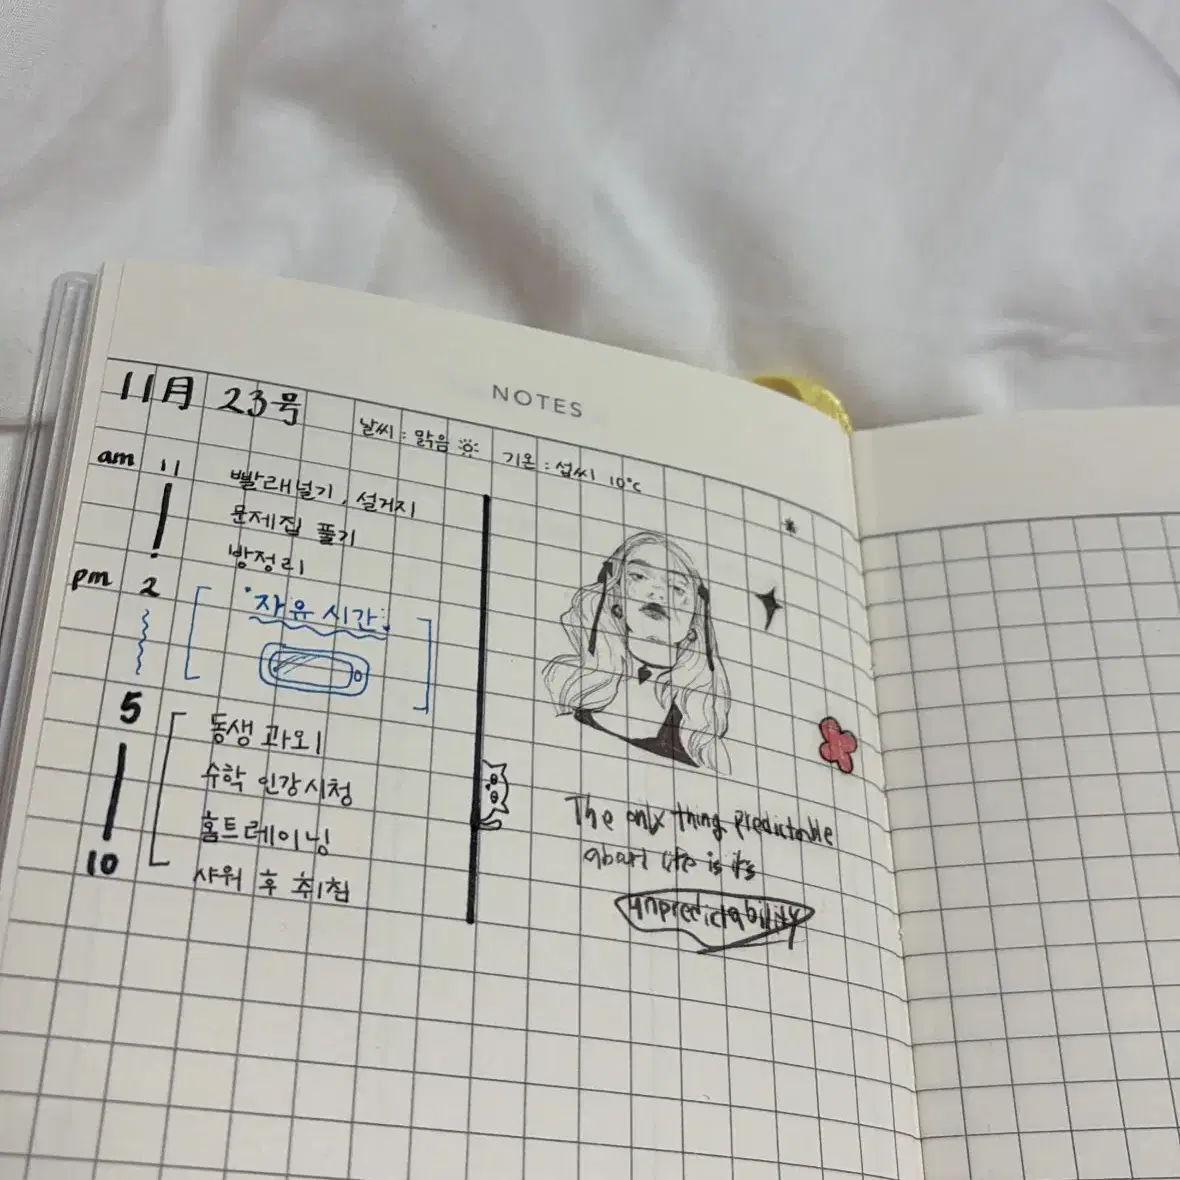 NOTES
11月 23号
날씨 : 맑음 기온 : 섭씨 10°c
am 11
빨래널기, 설거지
문제집 풀기
방정리
pm 2
자유시간
5
동생 과외
수학 인강시청
홈트레이닝
10
샤워 후 취침
The only thing predictable
about life is it's
unpredictability